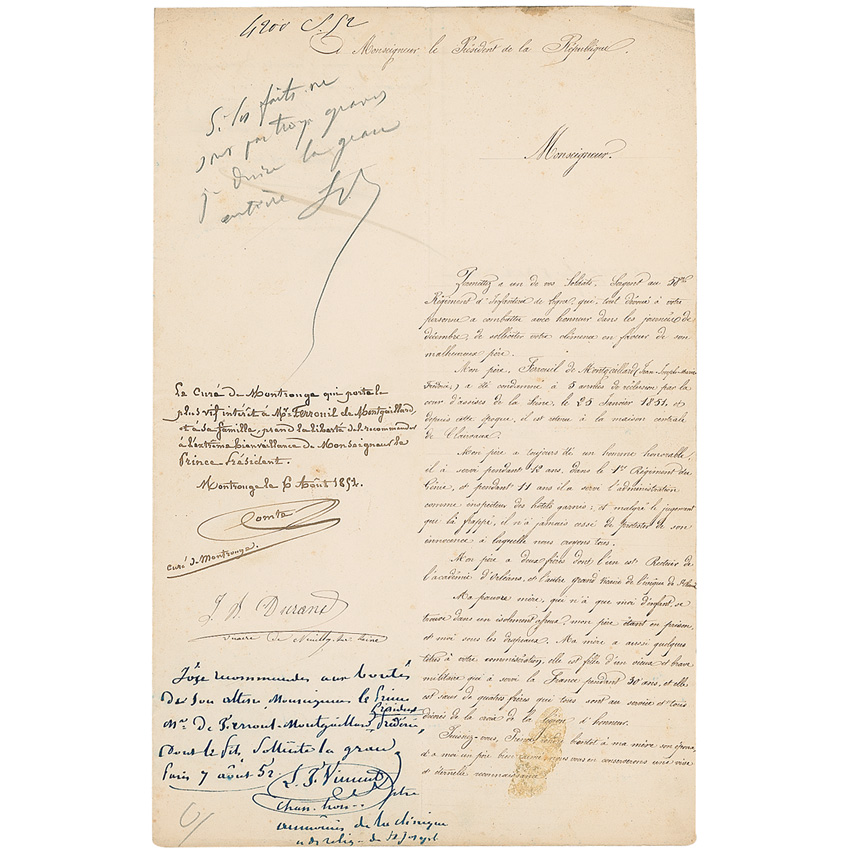 4200 S. 52
Monseigneur le Président de la République.
Si les faits ne
sont pas trop graves
je désire la grace
entière
Monseigneur.
Permettez a un de vos Soldats, Sergent au 58me
Régiment d'Infanterie de ligne, qui, tout dévoué à votre
personne a combattu avec honneur dans les journées de
décembre, de solliciter votre clémence en faveur de son
malheureux père.
Mon père, Ferrouil de Montgaillard (Jean Joseph
Frédéric,) a été condamné à 5 années de réclusion par la
cour d'assises de la Seine, le 25 Janvier 1851, et
depuis cette époque, il est retenu à la maison centrale
de Clairvaux.
Mon père a toujours été un homme honorable,
il a servi pendant 12 ans, dans le 1er Régiment du
Génie, et pendant 11 ans il a servi l'administration
comme inspecteur des hôtels garnis; et malgré le jugement
qui l'a frappé, il n'a jamais cessé de protester de son
innocence à laquelle nous croyons tous.
Mon père a deux frères dont l'un est Recteur de
l'académie d'Orléans, et l'autre grand vicaire de l'évêque de
Ma pauvre mère, qui n'a que moi d'enfant, se
trouve dans un isolement affreux; mon père étant en prison,
et moi sous les drapeaux. Ma mère a aussi quelques
titres à votre commisération, elle est fille d'un vieux et brave
militaire qui a servi la France pendant 30 ans, et elle
est sœur de quatre frères qui tous sont au service et tous
décorés de la croix de la Légion d'honneur.
bientôt à ma mère son époux,
et a moi un père bien nous vous en conserverons une vive
et éternelle reconnaissance.
Le Curé de Montrouge qui porte le
plus vif intérêt à Mr. Ferrouil de Montgaillard,
et à sa famille, prend la liberté de le recommander
à l'extrême bienveillance de Monseigneur le
Prince Président.
Montrouge le 6 Août 1852.
Comte
curé de Montrouge.
J. A. Durand
vicaire de Neuilly-sur-Seine
J'ose recommander aux bontés
De Son altesse Monseigneur le Prince
Président
Mr. De Ferrouil-Montgaillard, Frédéric,
Dont le fils Sollicite la grace
Paris 7 août 52
L. F. Vincent
ptre
chan. hon.
aumônier de la clinique
et de relig. de St Joseph